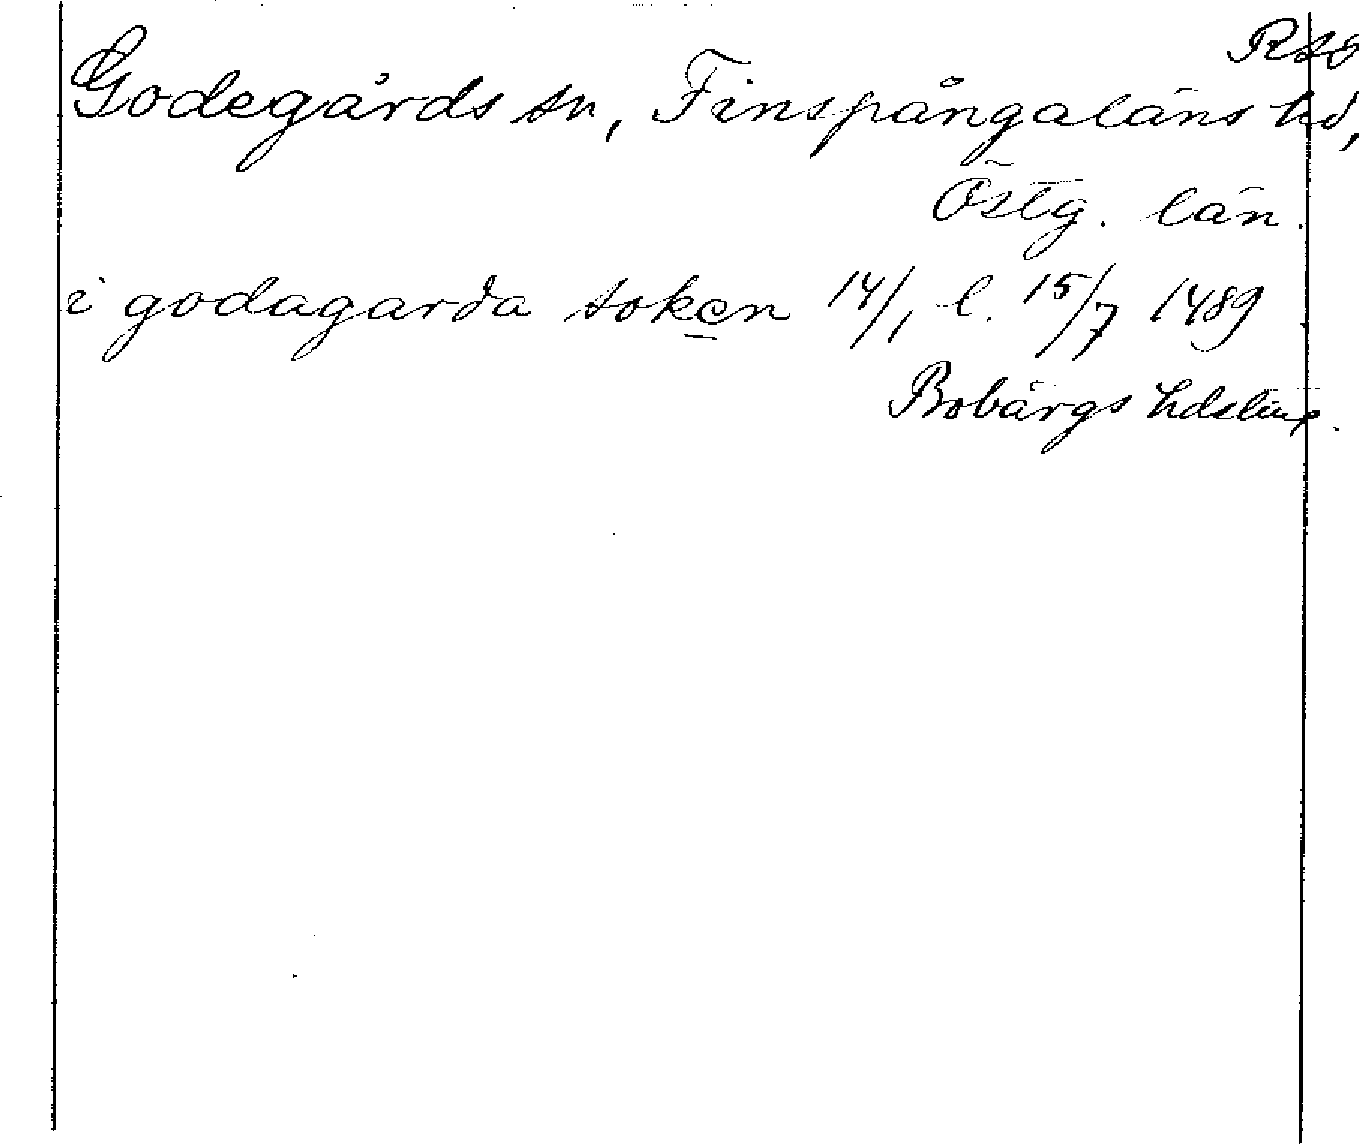 Rso
Godegårds sn, Finspångaläns hd,
Östg. län.
i godagarda soken 14/1 l. 15/7 1489
Bobärgs hdslinf.